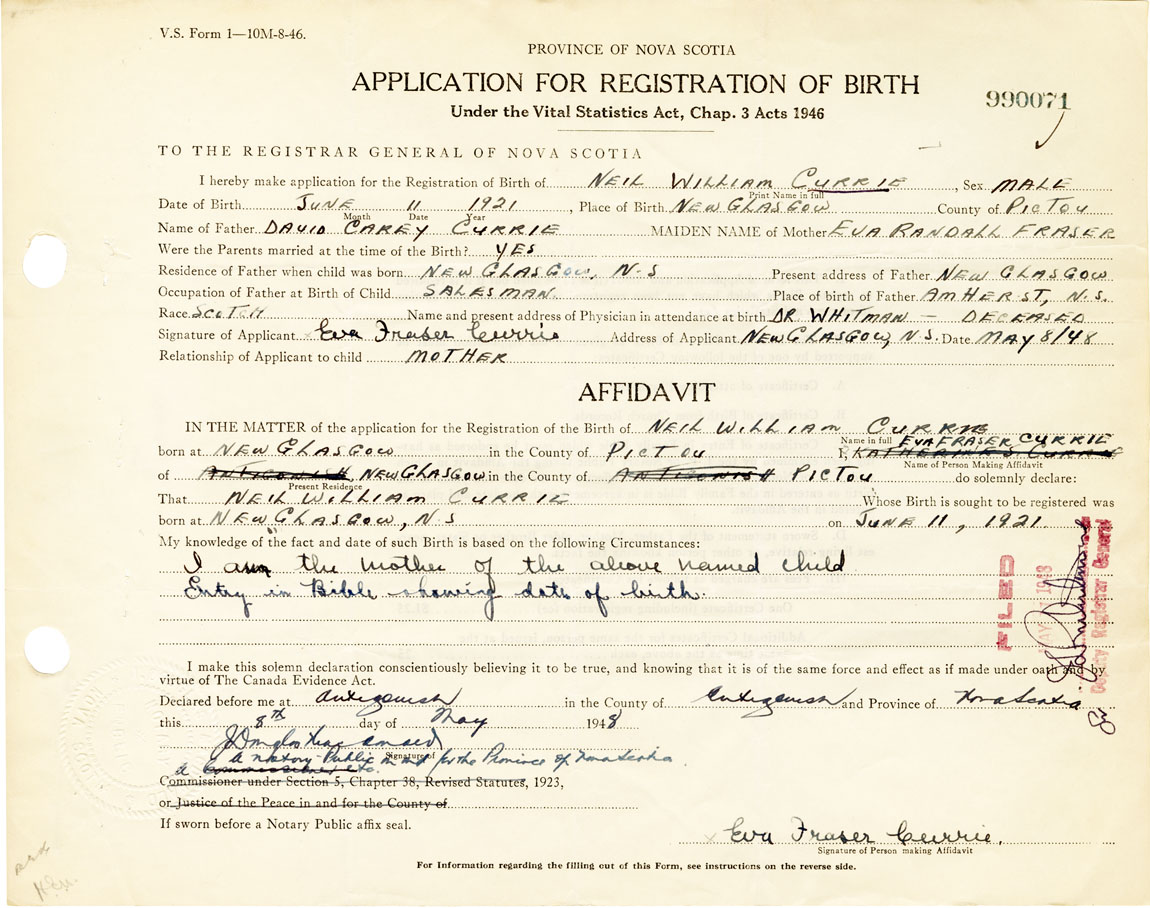 V.S. Form 1—10M-8-46.
PROVINCE OF NOVA SCOTIA
APPLICATION FOR REGISTRATION OF BIRTH
990071
Under the Vital Statistics Act, Chap. 3 Acts 1946
TO THE REGISTRAR GENERAL OF NOVA SCOTIA
I hereby make application for the Registration of Birth of NEIL WILLIAM CURRIE, Sex MALE
Print Name in full
Date of Birth JUNE 11 1921, Place of Birth NEW GLASGOW County of PICTOU
Month Date Year
Name of Father DAVID CAREY CURRIE MAIDEN NAME of Mother EVA RANDALL FRASER
Were the Parents married at the time of the Birth? YES
Residence of Father when child was born NEW GLASGOW, N.S Present address of Father NEW GLASGOW
Occupation of Father at Birth of Child SALESMAN Place of birth of Father AMHERST, N.S.
Race SCOTCH Name and present address of Physician in attendance at birth DR WHITMAN — DECEASED
Signature of Applicant x Eva Fraser Currie Address of Applicant NEW GLASGOW, N.S. Date MAY 8/48
Relationship of Applicant to child MOTHER
AFFIDAVIT
IN THE MATTER of the application for the Registration of the Birth of NEIL WILLIAM CURRIE
Name in full EVA FRASER CURRIE
born at NEW GLASGOW in the County of PICTOU I,
Name of Person Making Affidavit
of ANTIGONISH, NEW GLASGOW in the County of ANTIGONISH PICTOU do solemnly declare:
Present Residence
That NEIL WILLIAM CURRIE Whose Birth is sought to be registered was
born at NEW GLASGOW, N.S on JUNE 11, 1921.
My knowledge of the fact and date of such Birth is based on the following Circumstances:
I am the mother of the above named child
Entry in Bible showing date of birth.
FILED
MAY 1948
Deputy Registrar General
I make this solemn declaration conscientiously believing it to be true, and knowing that it is of the same force and effect as if made under oath and by
virtue of The Canada Evidence Act.
Declared before me at Antigonish in the County of Antigonish and Province of Nova Scotia
this 8th day of May 1948
Signature of
A Notary Public in and for the Province of Nova Scotia.
a Commissioner etc.
Commissioner under Section 5, Chapter 38, Revised Statutes, 1923,
or Justice of the Peace in and for the County of
If sworn before a Notary Public affix seal.
x Eva Fraser Currie.
Signature of Person making Affidavit
For Information regarding the filling out of this Form, see instructions on the reverse side.